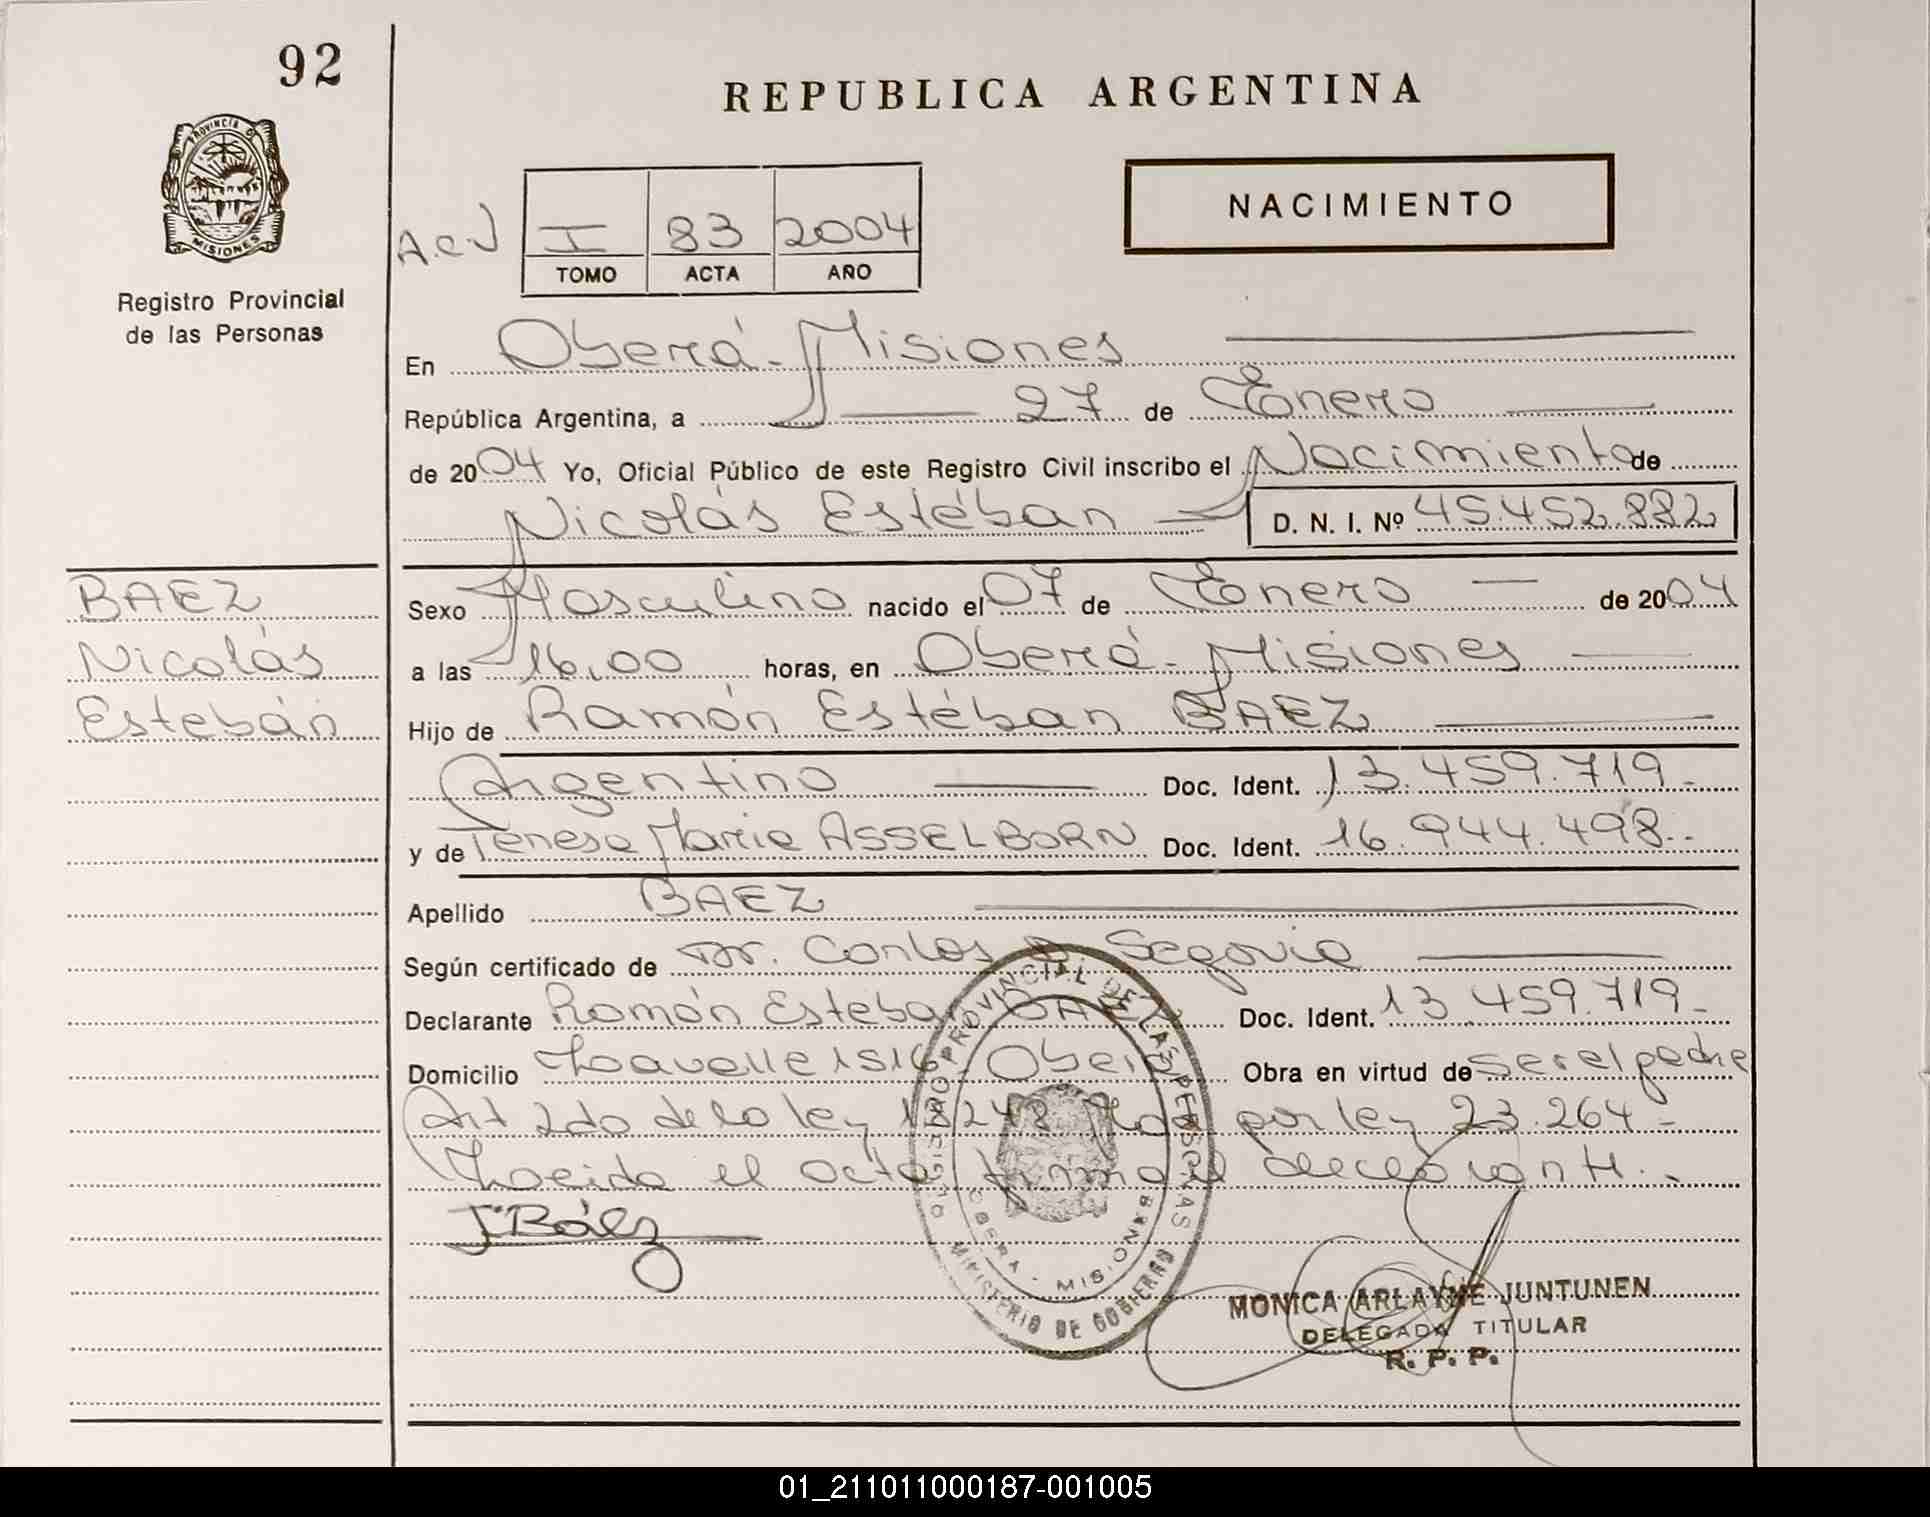 92
REPUBLICA ARGENTINA
PROVINCIA D
MISIONES
Registro Provincial
de las Personas
NACIMIENTO
I 83 2004
TOMO ACTA AÑO
En Oberá - Misiones
República Argentina, a 27 de Enero
de 2004 Yo, Oficial Público de este Registro Civil inscribo el Nacimiento de
Nicolás Estéban D. N. I. Nº 45.452.882
BAEZ
Nicolás
Estebán
Sexo Masculino nacido el 07 de Enero de 2004
a las 16,00 horas, en Oberá - Misiones
Hijo de Ramón Estéban BAEZ
Argentino Doc. Ident. 13.459.719.-
y de Teresa Maria ASSELBORN Doc. Ident. 16.944.498.-
Apellido BAEZ
Según certificado de Dr. Carlos Segovia
Declarante Ramón Esteban BAEZ Doc. Ident. 13.459.719.-
Domicilio Lavalle 1516 Oberá Obra en virtud de ser el padre
Art 2do de la ley 18.248 Mod por ley 23.264 -
Leida el acta firma el declarante.-
Báez
REGISTRO PROVINCIAL DE LAS PERSONAS
OBERA - MISIONES
MINISTERIO DE GOBIERNO
MONICA ARLAYNE JUNTUNEN
DELEGADA TITULAR
R. P. P.
01_211011000187-001005